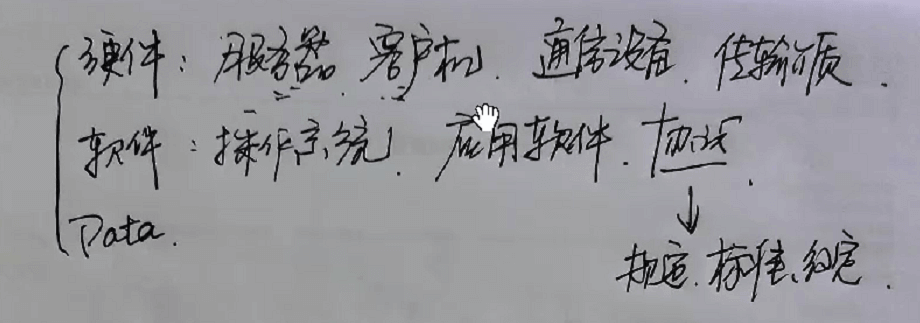 硬件：服务器、客户机、通信设备、传输介质.
软件：操作系统、应用软件、协议.
Data.
规定、标准、约定.